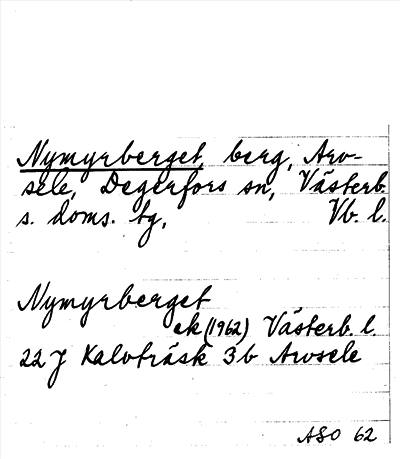 Nymyrberget, berg, Arv-
sele, Degerfors sn, Västerb.
s. doms. tg, Vb. l.
Nymyrberget
ek (1962) Västerb. l.
22 J Kalvträsk 3b Arvsele
ASO 62